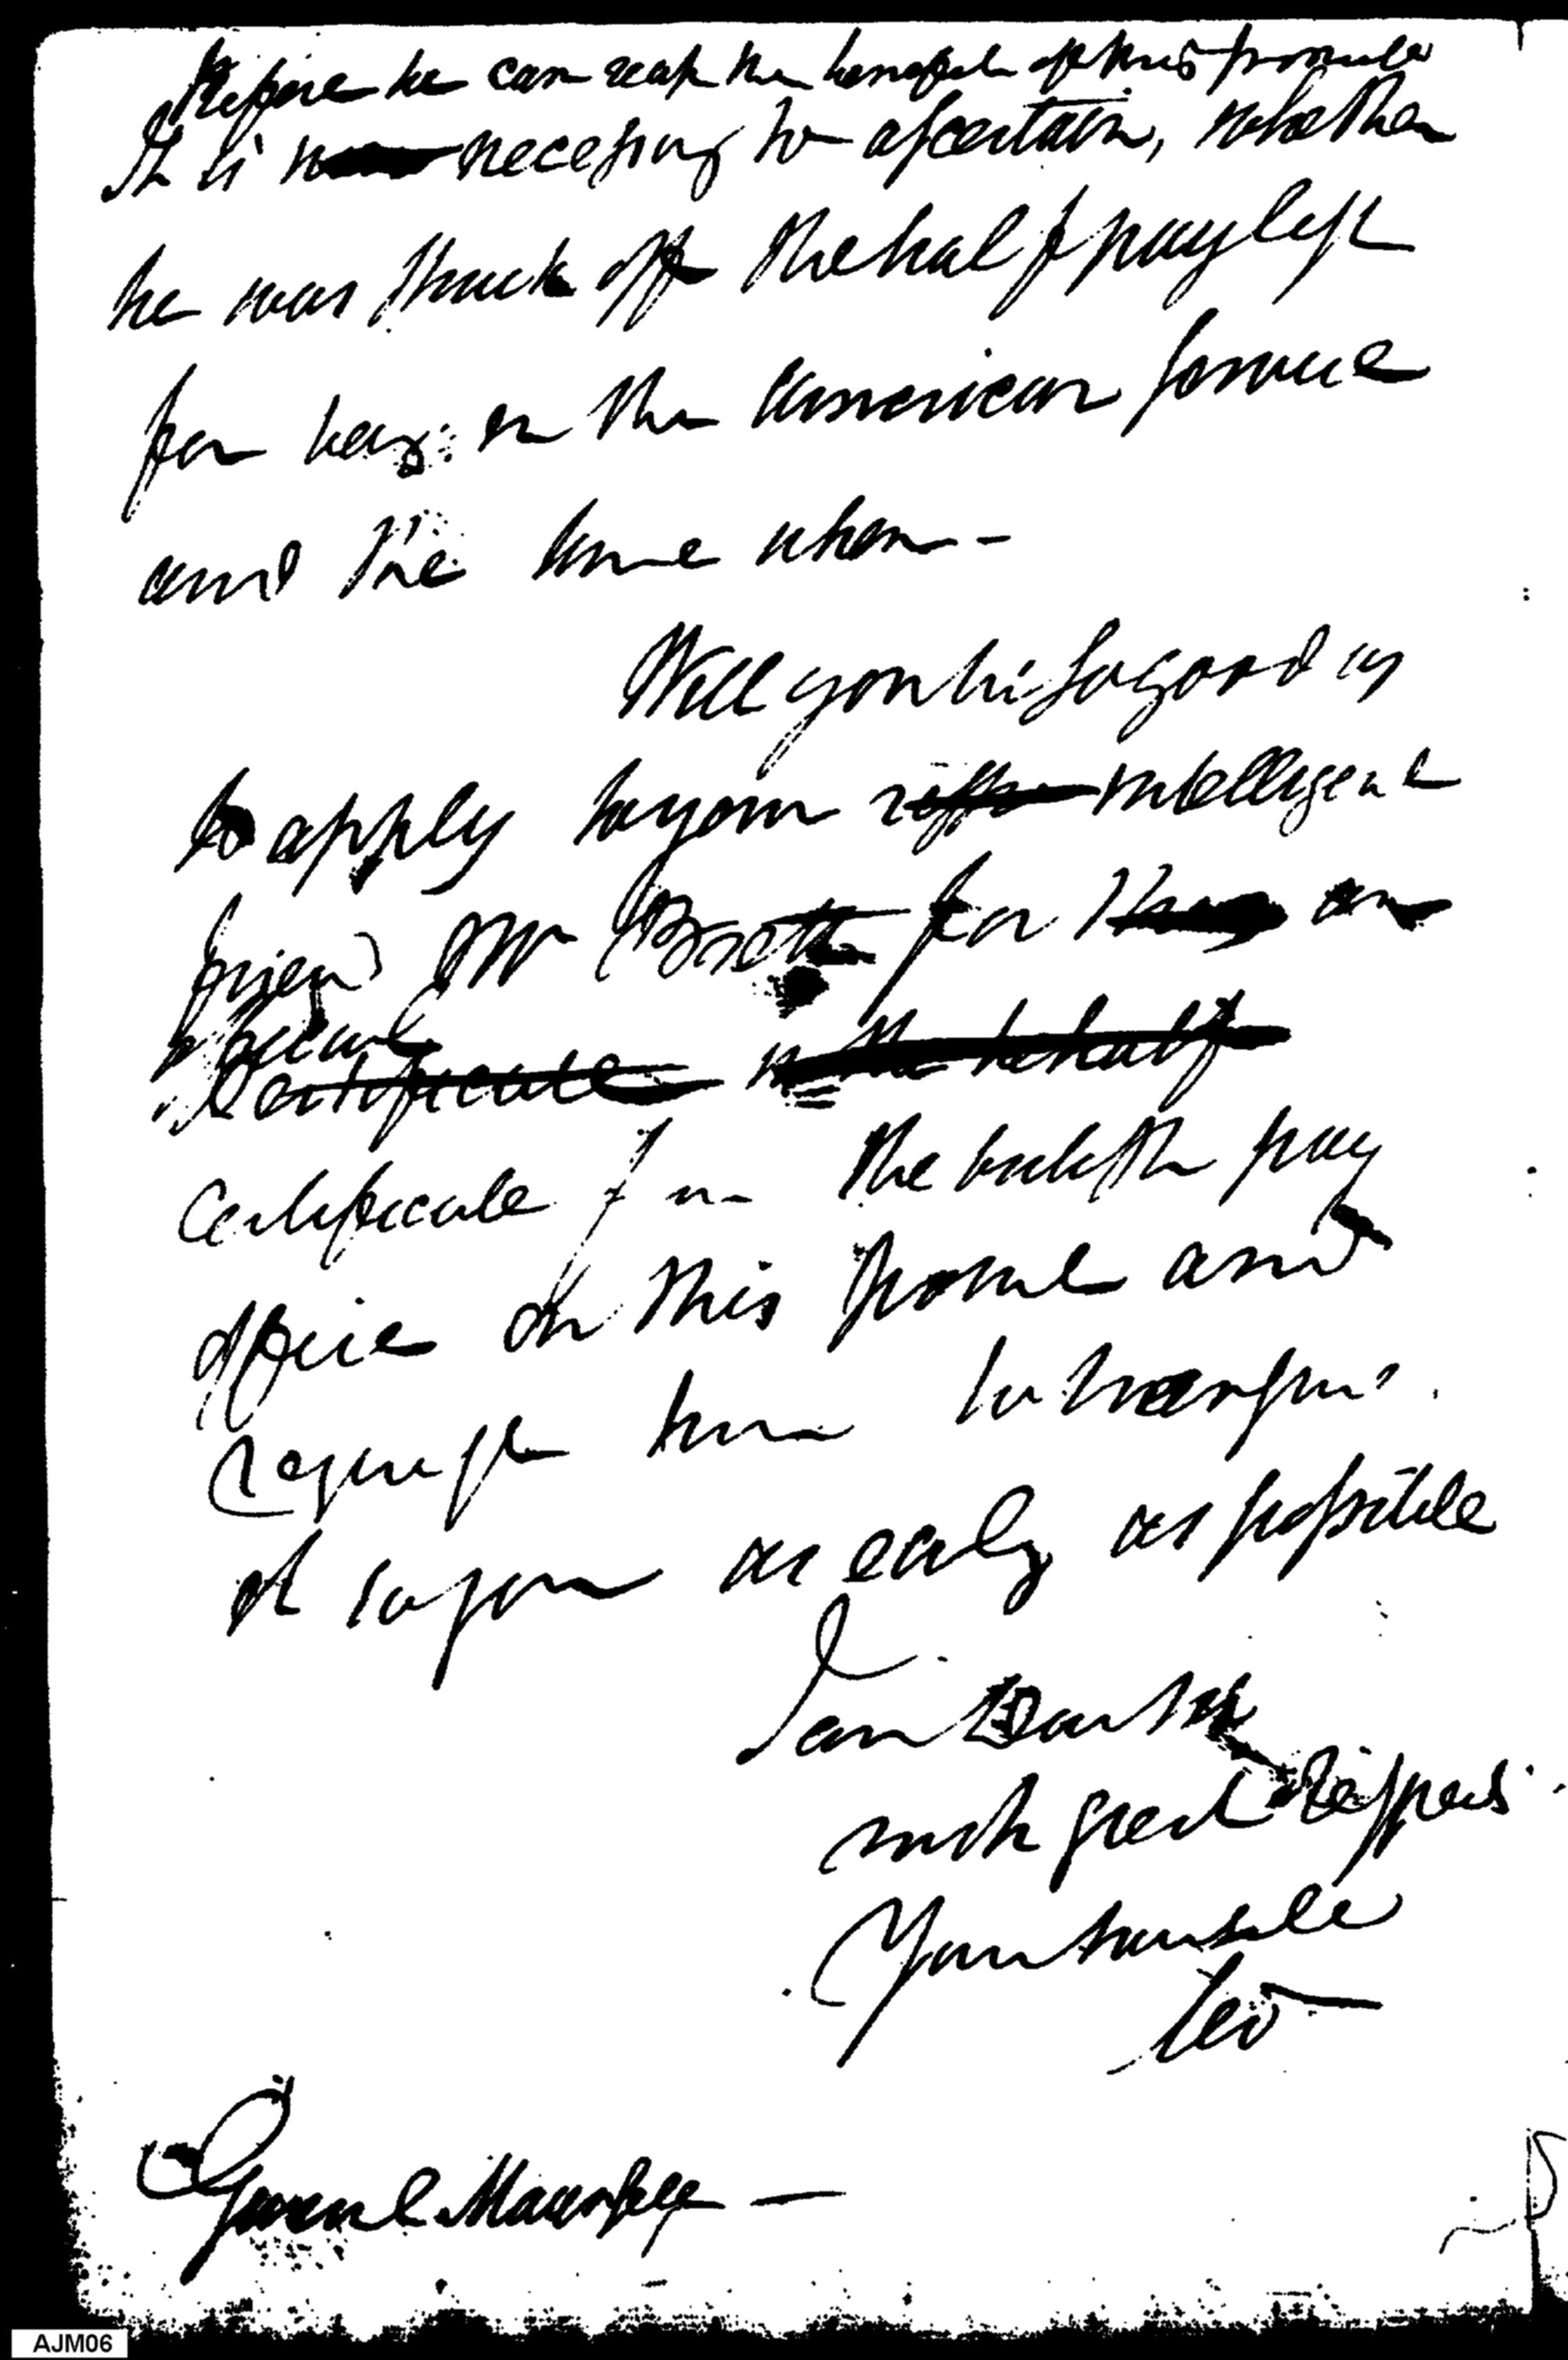 Before he can reap the benefit of this promise
It is necessary to ascertain, whether
he was struck off the half pay list
for being in the American service
and the time when -
Will you be so good as
to apply to your intelligent
friend Mr for an
official
Certificate
Certificate from the british pay
office on this point and
request him to transfer
it to you as early as possible
I am Dear Sir
with great Respect
Your humble
Ser
General Maunsell —
AJM06